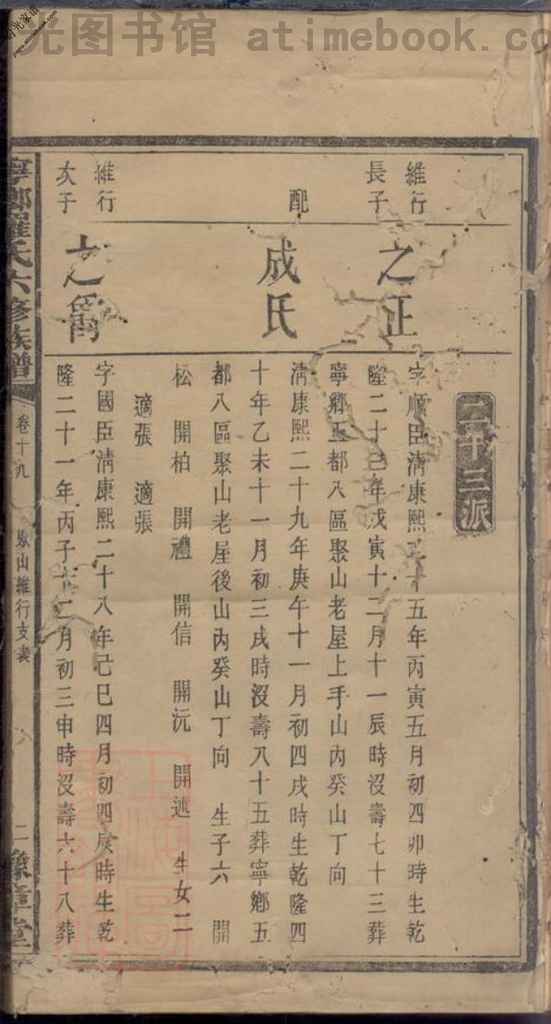 光图书馆 atimebook.com
二十三派
維行
長子
之正
字順臣淸康熙二十五年丙寅五月初四卯時生乾
隆二十三年戊寅十二月十一辰時沒壽七十三葬
寧鄉五都八區聚山老屋上手山內癸山丁向
配
成氏
淸康熙二十九年庚午十一月初四戌時生乾隆四
十年乙未十一月初三戌時沒壽八十五葬寧鄉五
都八區聚山老屋後山內癸山丁向 生子六 開
松 開柏 開禮 開信 開沅 開述 生女二
適張 適張
維行
次子
之爵
字國臣淸康熙二十八年己巳四月初四庚時生乾
隆二十一年丙子十二月初三申時沒壽六十八葬
寧鄉羅氏六修族譜
卷十九
聚山維行支表
二
豫章堂